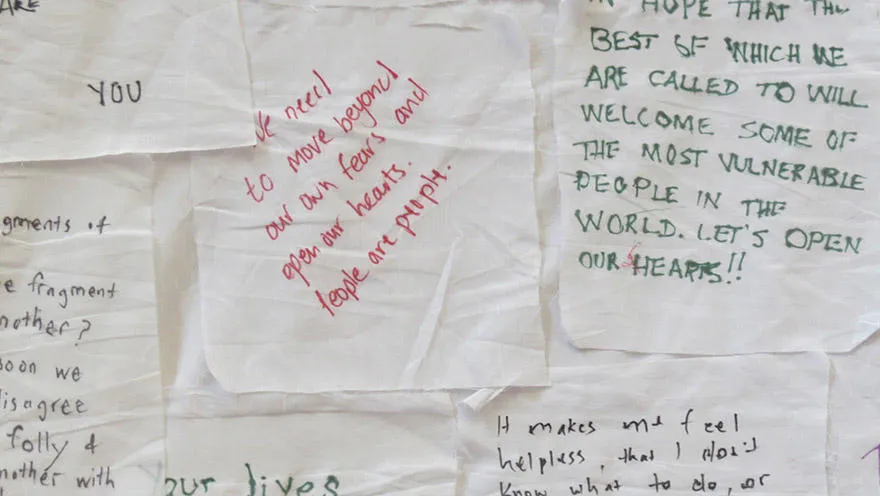 ARE
YOU
We need
to move beyond
our own fears and
open our hearts.
People are people.
IN HOPE THAT THE
BEST OF WHICH WE
ARE CALLED TO WILL
WELCOME SOME OF
THE MOST VULNERABLE
PEOPLE IN THE
WORLD. LET'S OPEN
OUR HEARTS!!
gments of
e fragment
nother?
soon we
disagree
folly &
nother with
our lives
It makes me feel
helpless, that I don't
know what to do, or